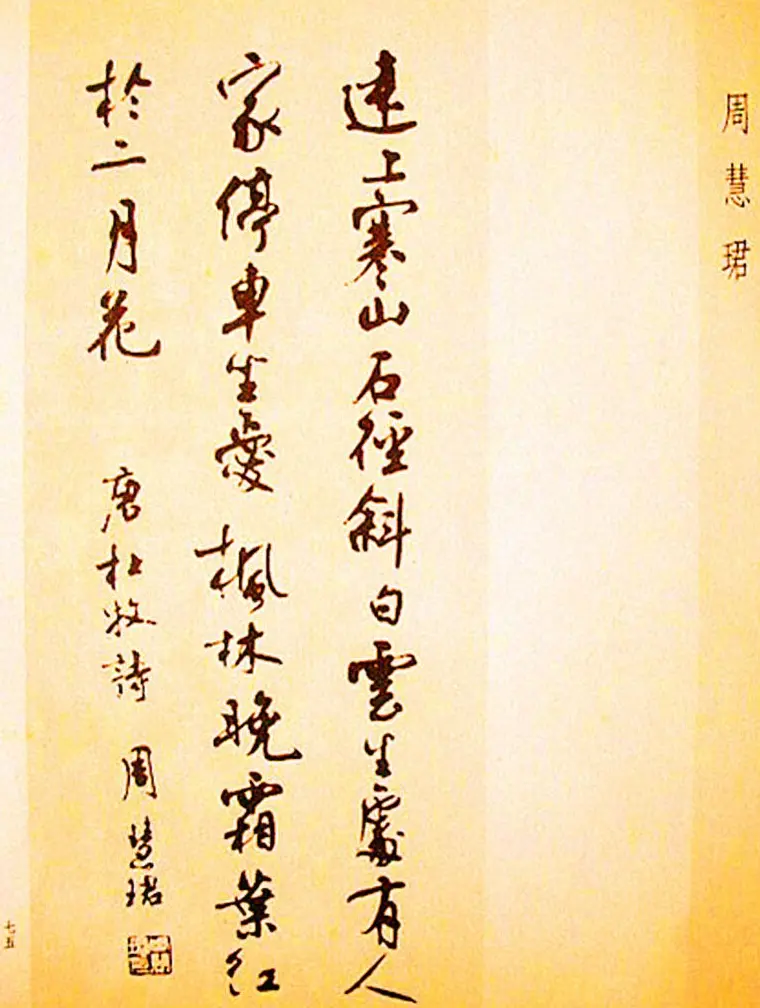 周慧珺
遠上寒山石徑斜白雲生處有人
家停車坐愛楓林晚霜葉紅
於二月花
唐杜牧詩 周慧珺
七五